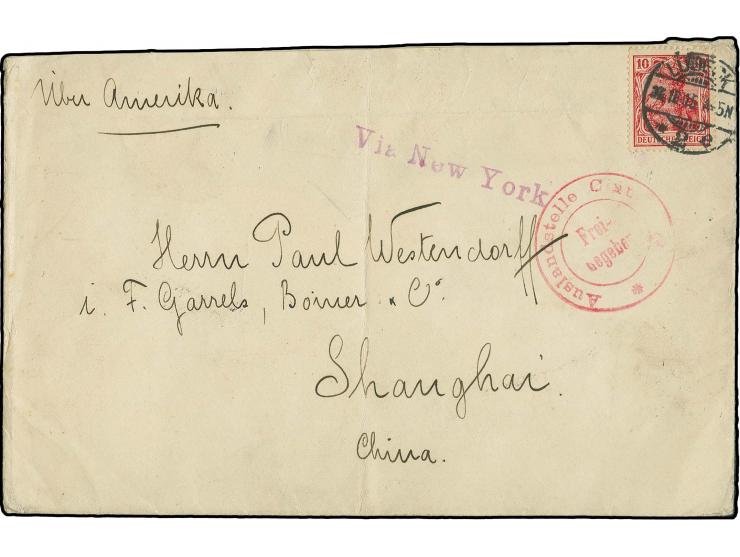 Über Amerika.
10
DEUTSCHES REICH
Via New York
Auslandsstelle
Frei-
gegeben
Herrn Paul Westendorff
i. F. Garrels, Börner & Co.
Shanghai.
China.